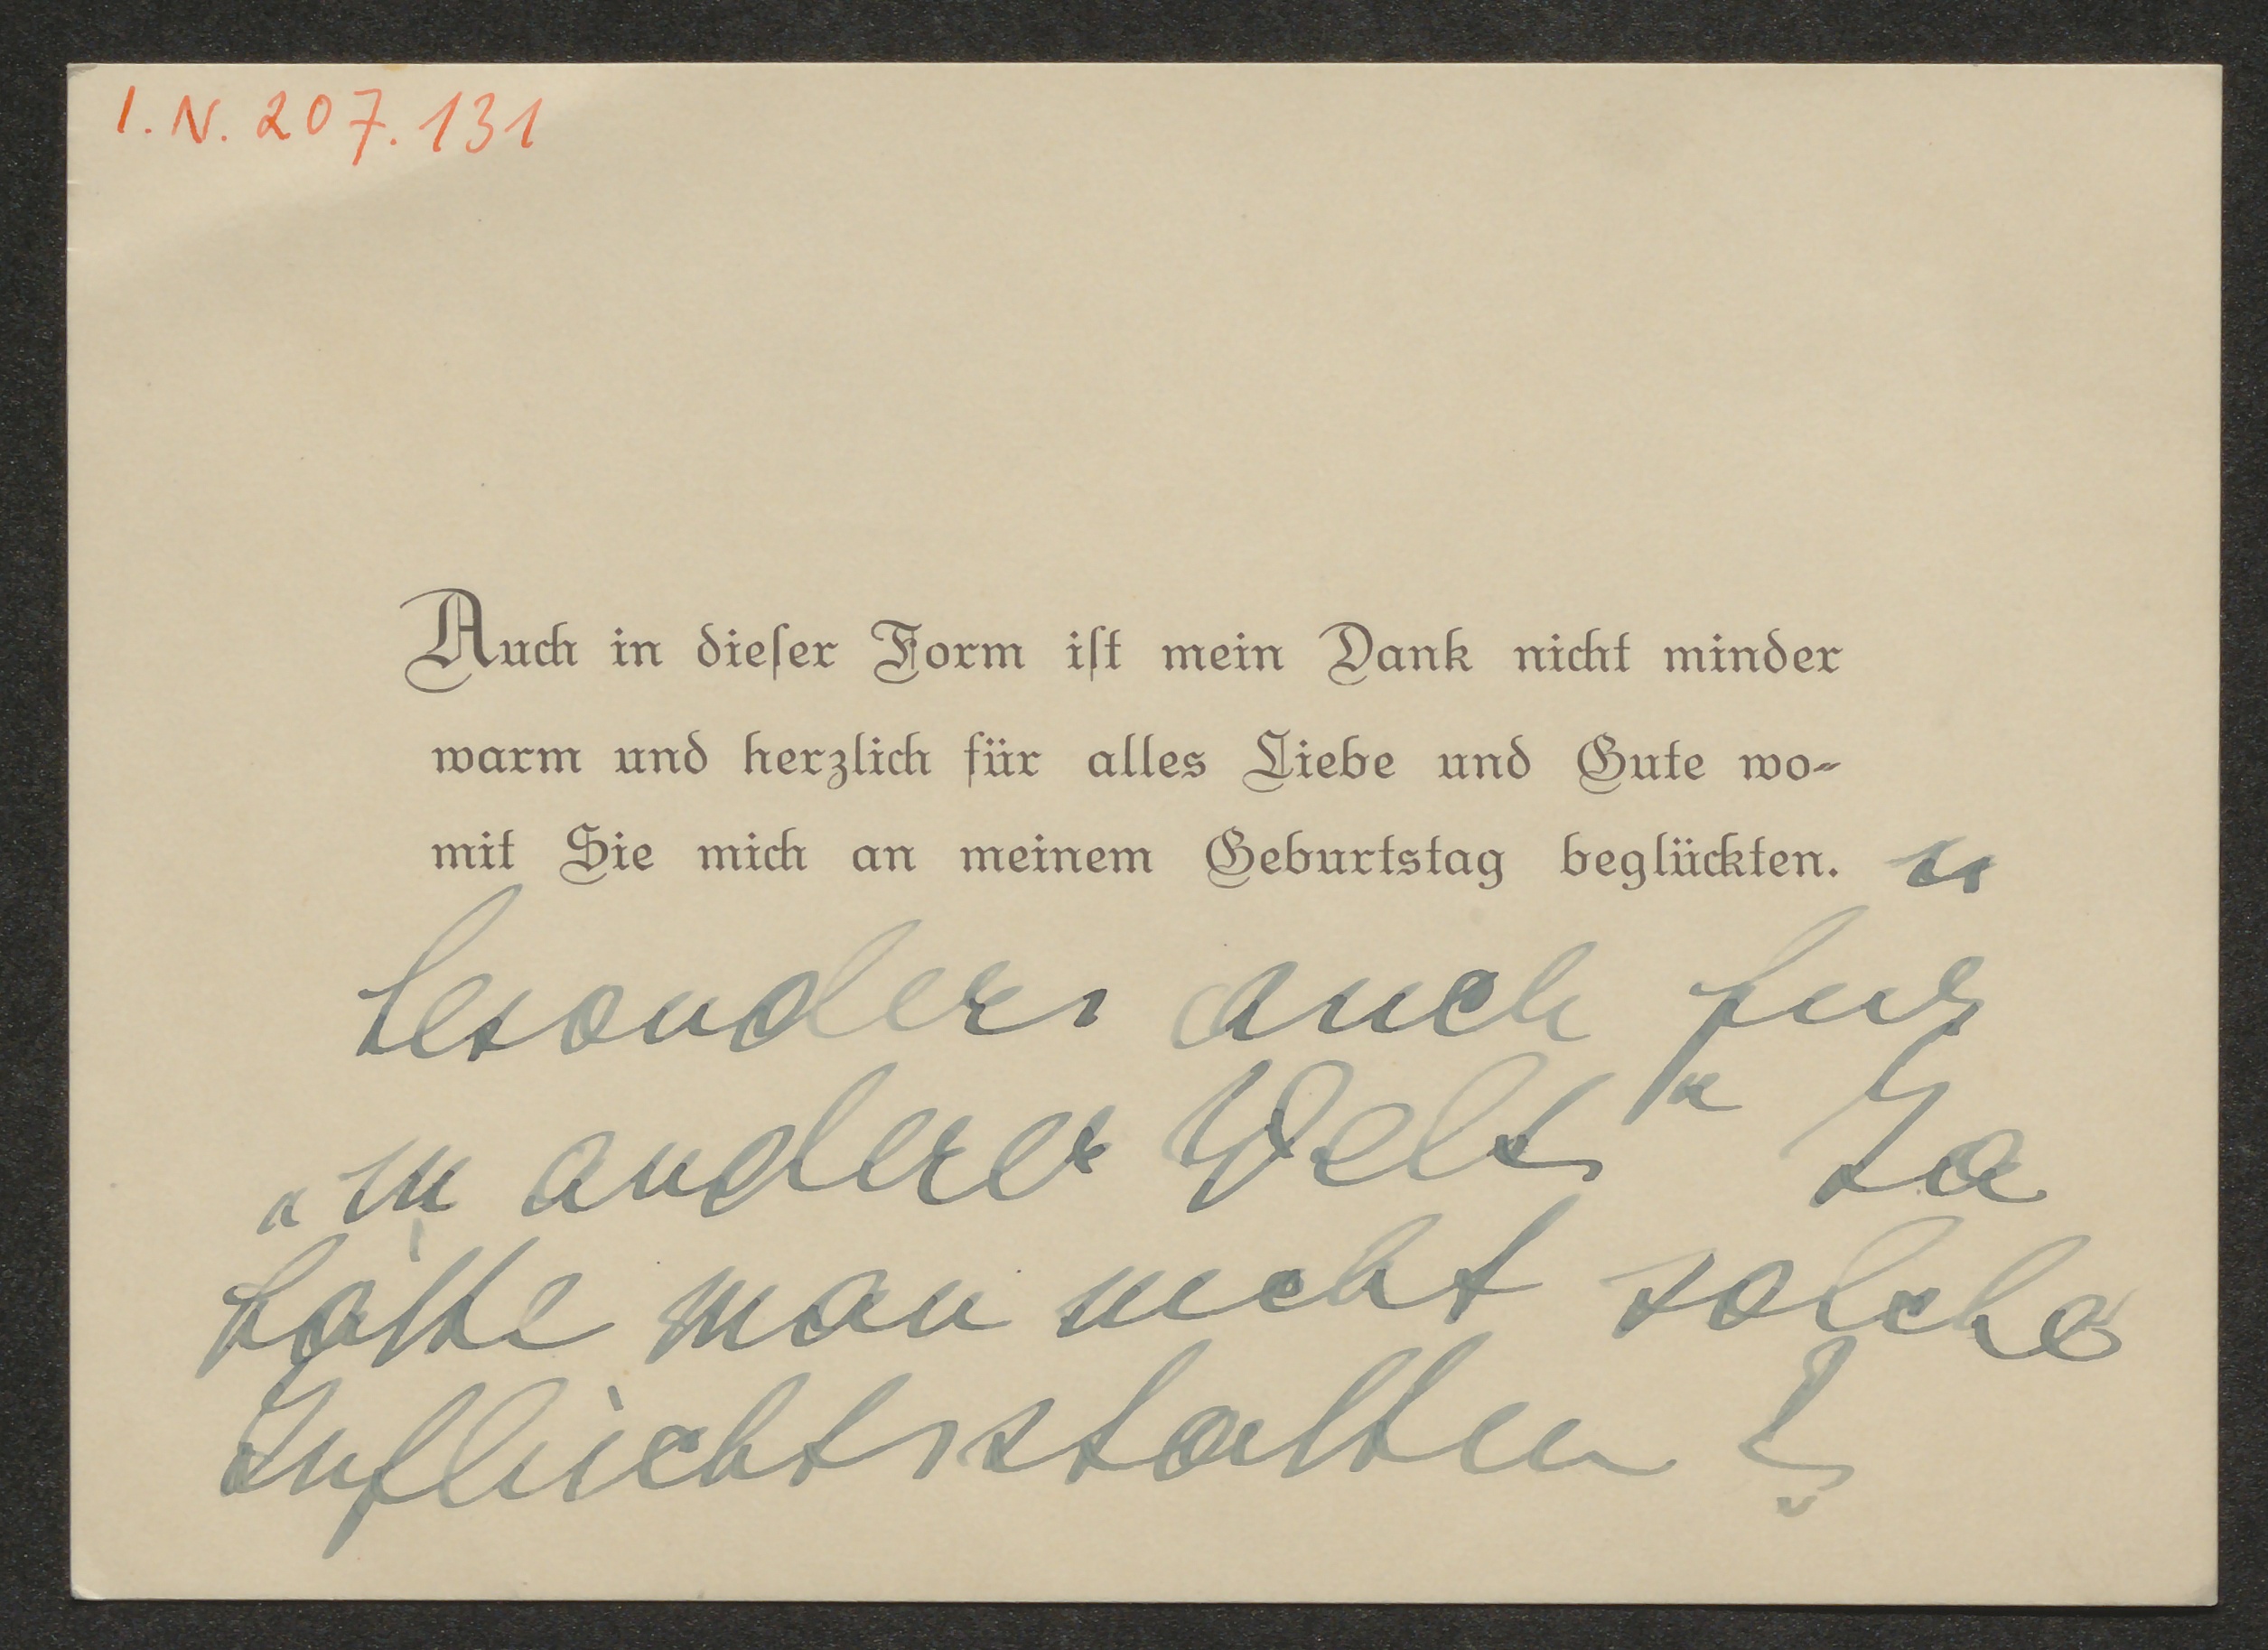 I. N. 207.131
Auch in dieſer Form iſt mein Dank nicht minder
warm und herzlich für alles Liebe und Gute wo-
mit Sie mich an meinem Geburtstag beglückten. u
besonders auch fur
„in anderer Welt“ Ja
hätte man nicht solche
Zufluchtsstatten!